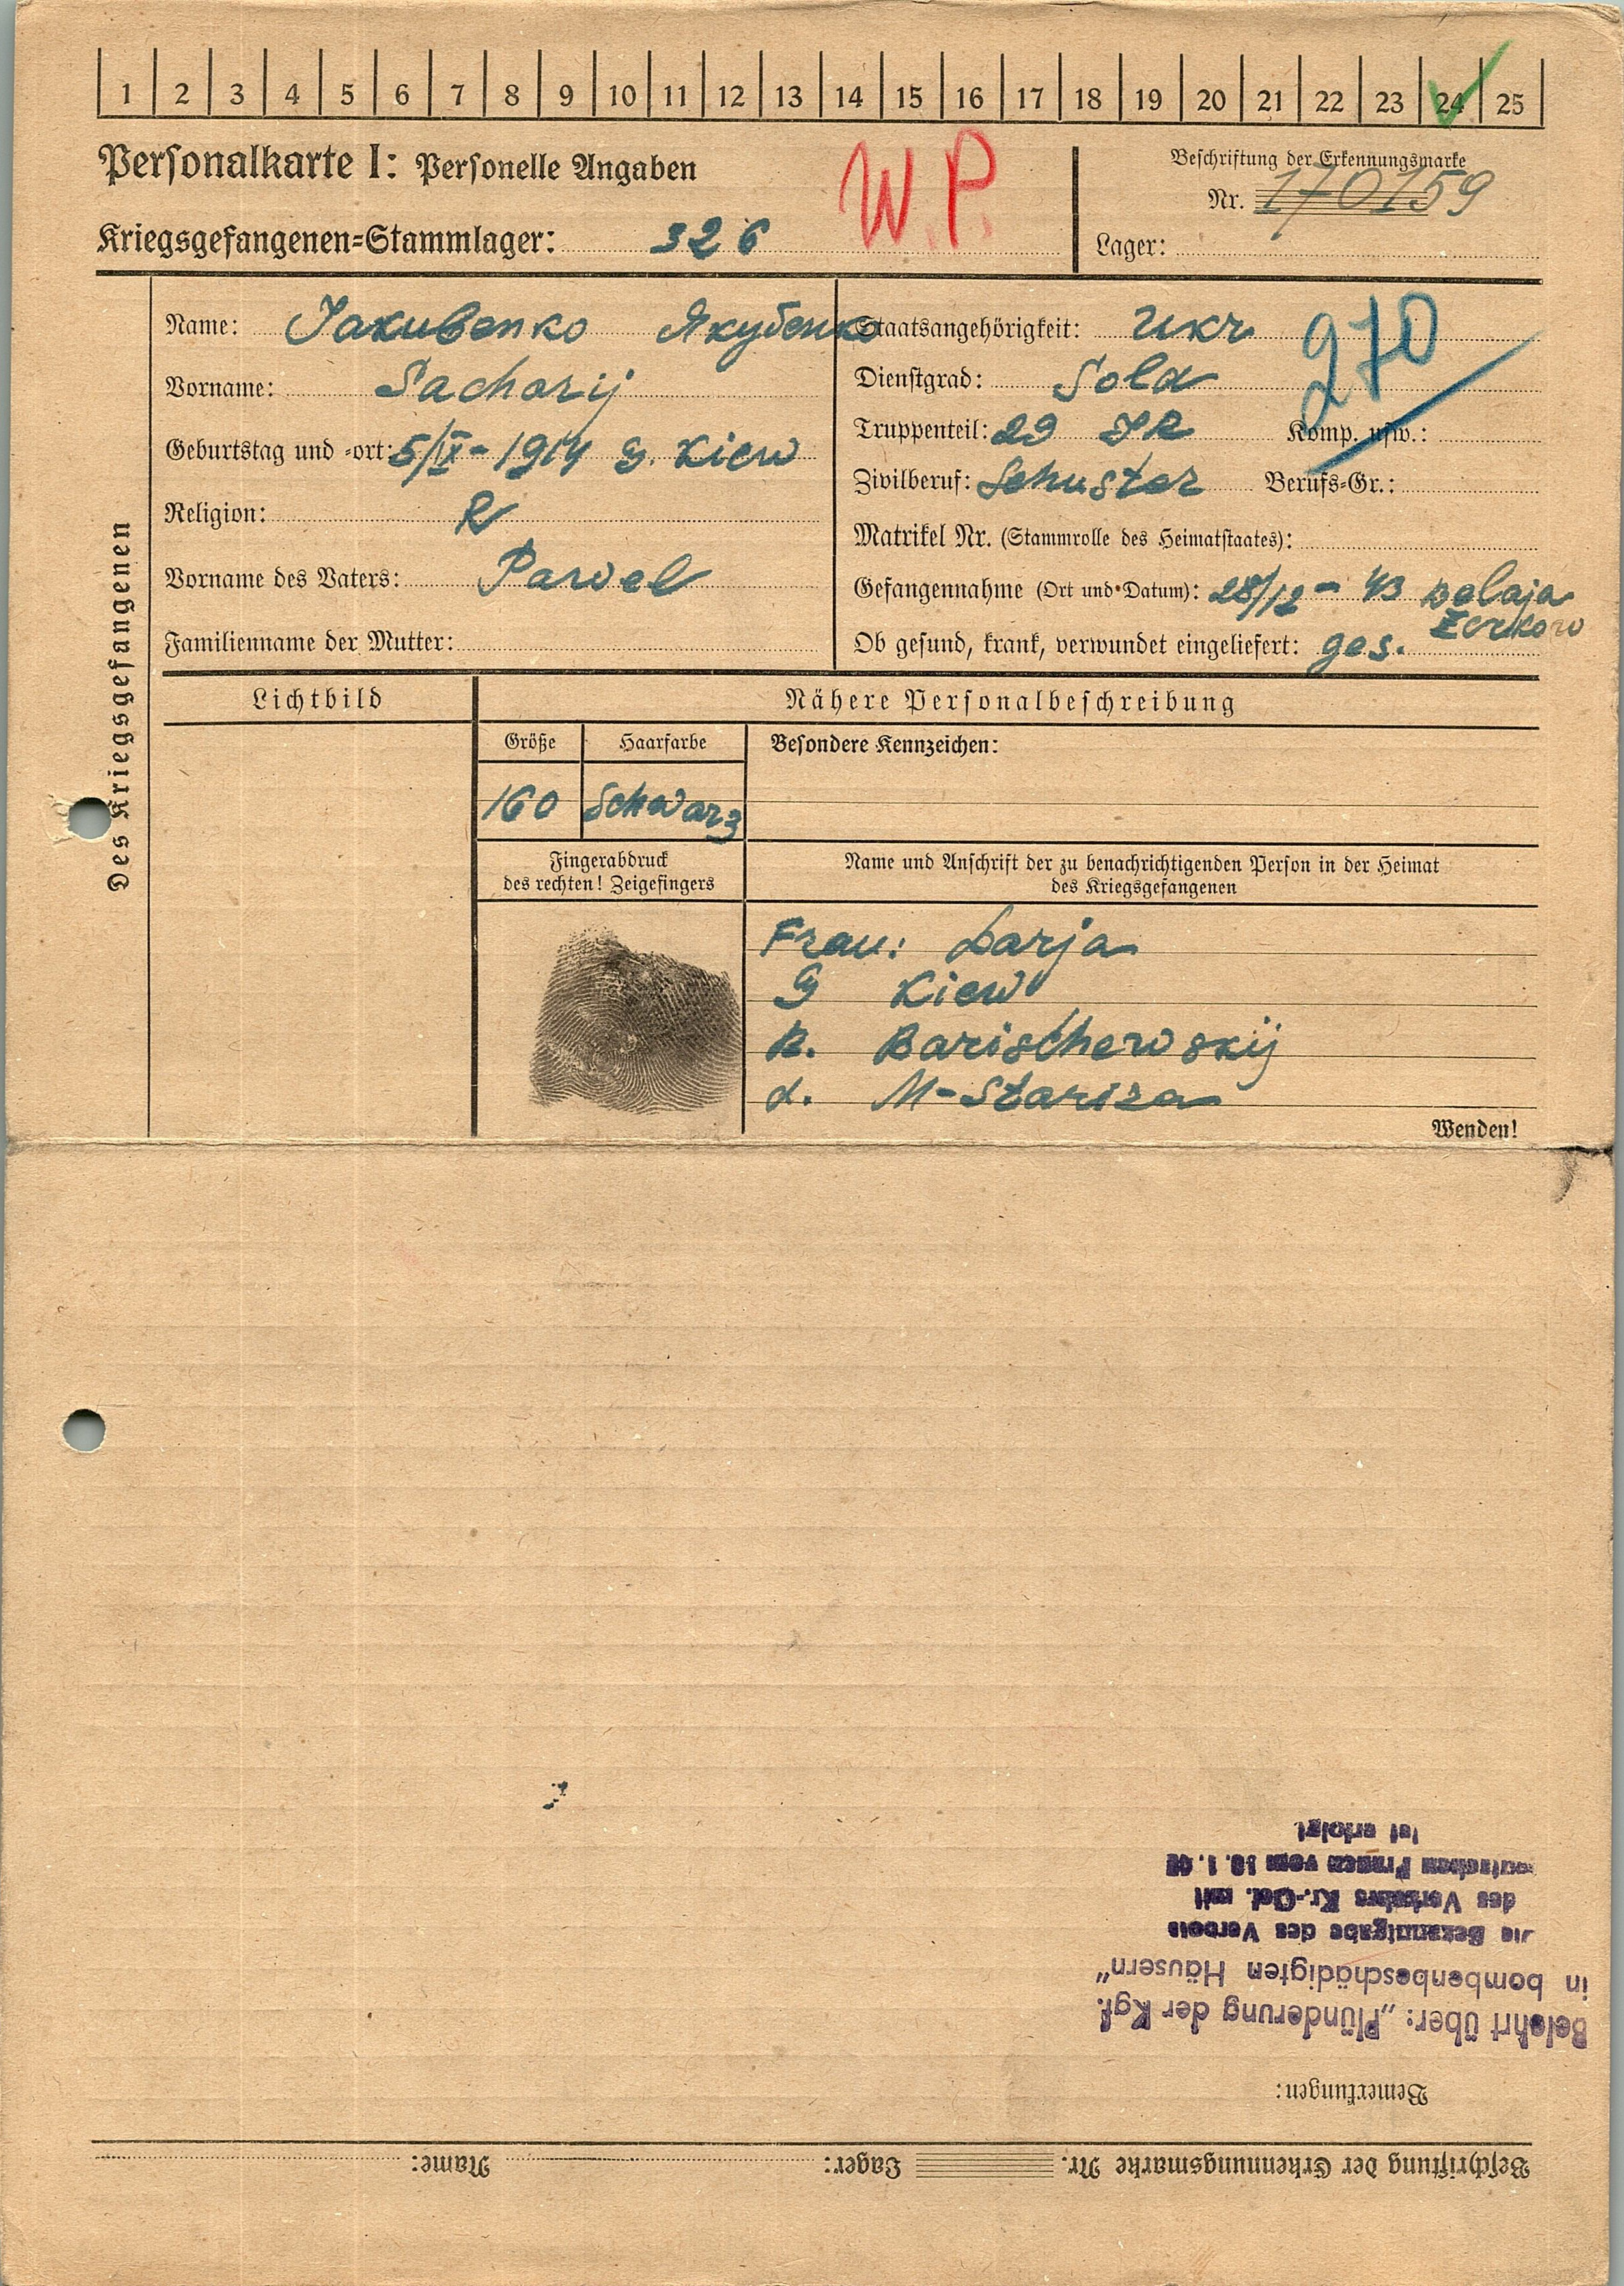 1 2 3 4 5 6 7 8 9 10 11 12 13 14 15 16 17 18 19 20 21 22 23 24 25
Personalkarte I: Personelle Angaben
W. P.
Beschriftung der Erkennungsmarke
Nr. 170159
Kriegsgefangenen=Stammlager: 326
Lager:
Des Kriegsgefangenen
Name: Jakubenko Якубенко
Vorname: Sachorij
Geburtstag und =ort: 5/IX - 1914 G. Kiew
Religion: R
Vorname des Vaters: Pawel
Familienname der Mutter:
Staatsangehörigkeit: Ukr
270
Dienstgrad: Sold
Truppenteil: 29 IR Komp. usw.:
Zivilberuf: Schuster Berufs=Gr.:
Matrikel Nr. (Stammrolle des Heimatstaates):
Gefangennahme (Ort und Datum): 28/12 - 43 Belaja
Zerkow
Ob gesund, krank, verwundet eingeliefert: ges.
Lichtbild
Nähere Personalbeschreibung
Größe Haarfarbe Besondere Kennzeichen:
160 Schwarz
Fingerabdruck
des rechten! Zeigefingers
Name und Anschrift der zu benachrichtigenden Person in der Heimat
des Kriegsgefangenen
Frau: Darja
G Kiew
R. Barischewskij
d. M-Stariza
Wenden!
Beschriftung der Erkennungsmarke Nr. Lager: Name:
Bemerkungen:
Belehrt über: „Plünderung der Kgf.
in bombenbeschädigten Häusern"
Die Bekanntgabe des Verbots
des Verkehrs Kr.-Gef. mit
deutschen Frauen vom 10. 1. 42
ist erfolgt